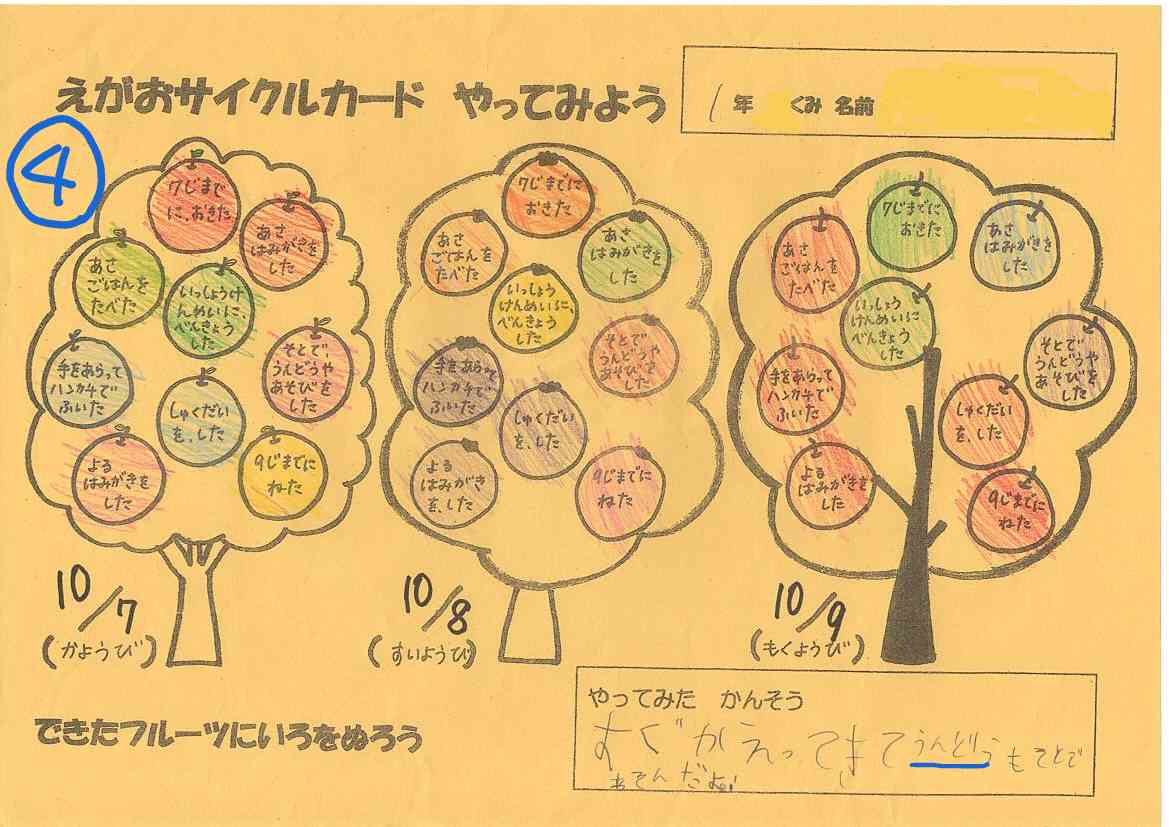 えがおサイクルカード やってみよう
1年 くみ 名前
④
7じまで
に、おきた
あさ
はみがきを
した
あさ
ごはんを
たべた
いっしょうけ
んめいに、
べんきょう
した
手をあらって
ハンカチで
ふいた
しゅくだい
を、した
そとで、
うんどうや
あそびを
した
よる
はみがきを
した
9じまでに
ねた
10/7
(かようび)
7じまでに
おきた
あさ
ごはんを
たべた
あさ
はみがきを
した
いっしょう
けんめいに、
べんきょう
した
そとで、
うんどうや
あそびを
した
手をあらって
ハンカチで
ふいた
しゅくだい
を、した
よる
はみがき
を、した
9じまでに
ねた
10/8
(すいようび)
7じまでに
おきた
あさ
ごはんを
たべた
あさ
はみがきを
した
いっしょう
けんめいに、
べんきょう
した
そとで
うんどうや
あそびを
した
手をあらって
ハンカチで
ふいた
しゅくだい
を、した
よる
はみがきを
した
9じまでに
ねた
10/9
(もくようび)
できたフルーツにいろをぬろう
やってみた かんそう
すぐかえってきてうんどうもそとで
あそんだよ。